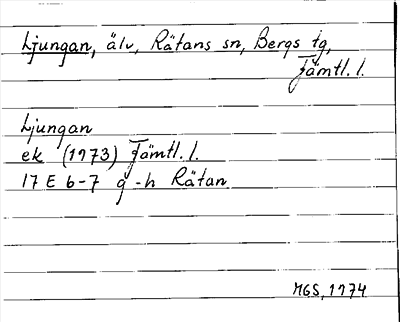 Ljungan, älv, Rätans sn, Bergs tg,
Jämtl. l.
Ljungan
ek (1973) Jämtl. l.
17 E 6-7 g-h Rätan
MGS, 1974